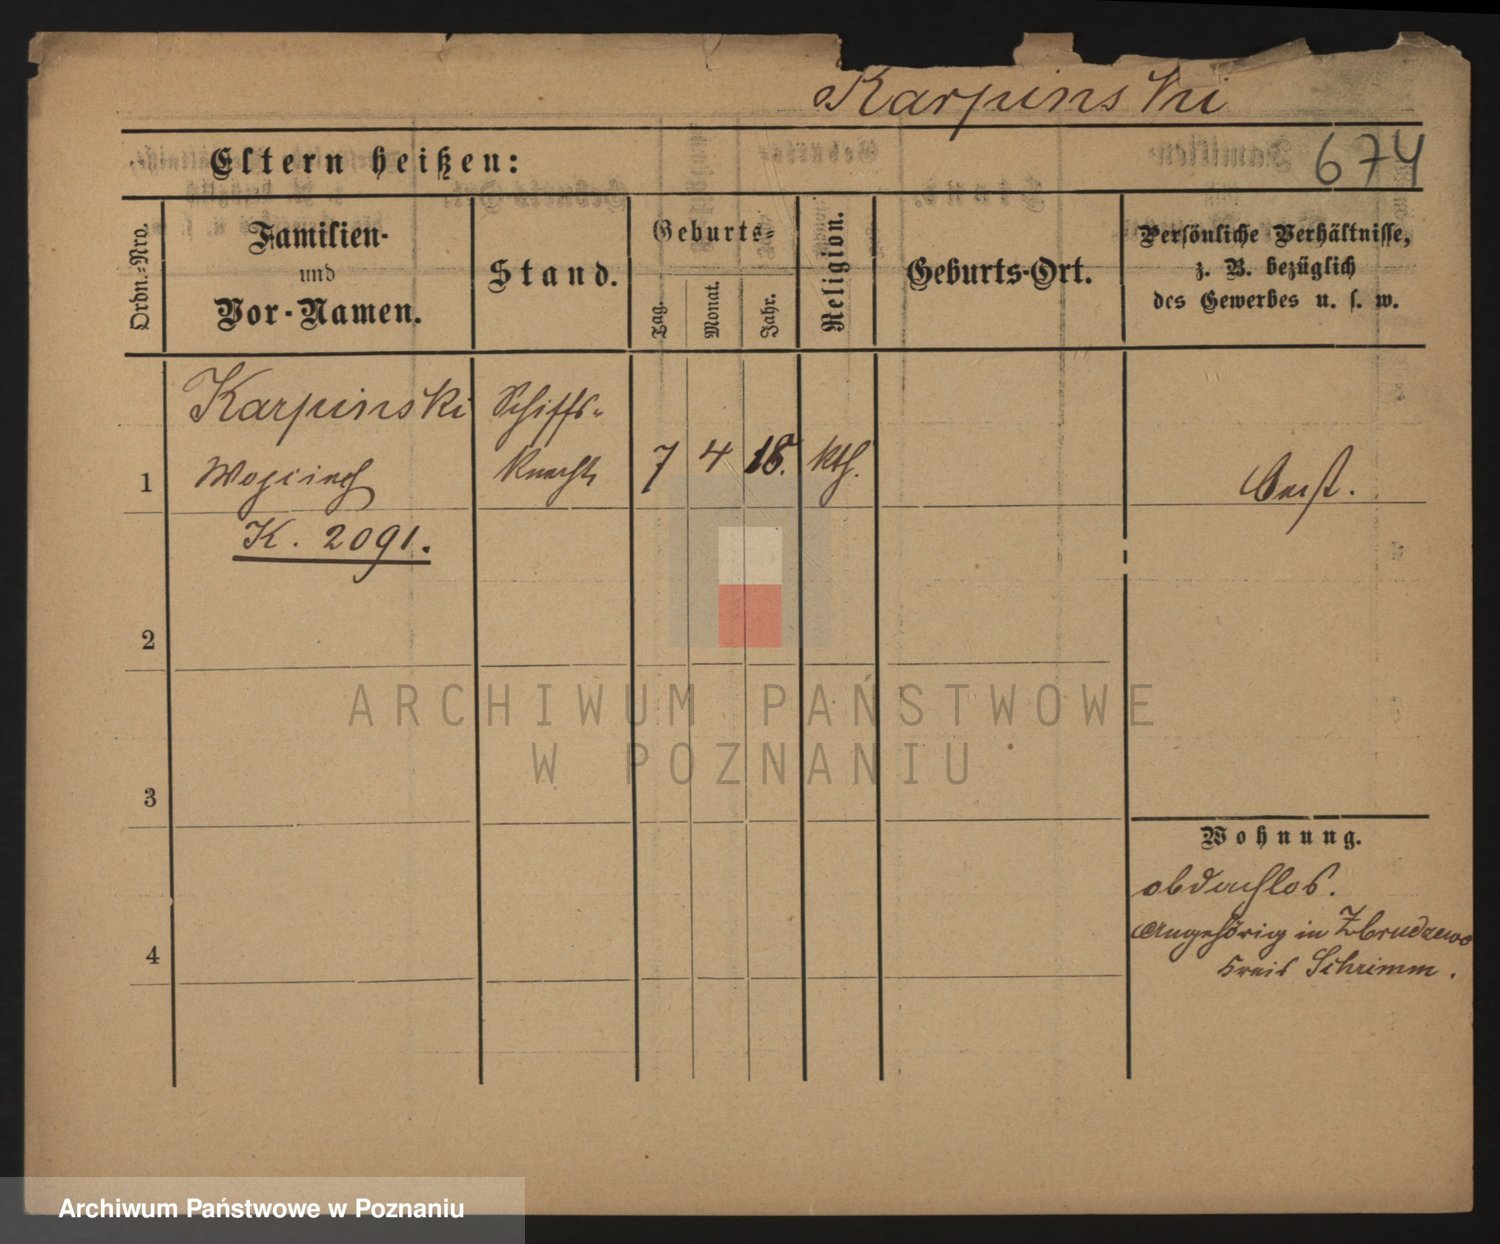 Karpinski
Eltern heißen:
674
Ordn.-Nro.
Familien-
und
Vor-Namen.
Stand.
Geburts-
Tag.
Monat.
Jahr.
Religion.
Geburts-Ort.
Persönliche Verhältnisse,
z. B. bezüglich
des Gewerbes u. s. w.
Karpinski
Schiffs-
1
Wojciech
Knecht
7
4
18.
kth.
K. 2091.
2
ARCHIWUM PAŃSTWOWE
W POZNANIU
3
Wohnung.
obdachlos.
Angehörig in Zbrudzewo
Kreis Schrimm.
4
Archiwum Państwowe w Poznaniu